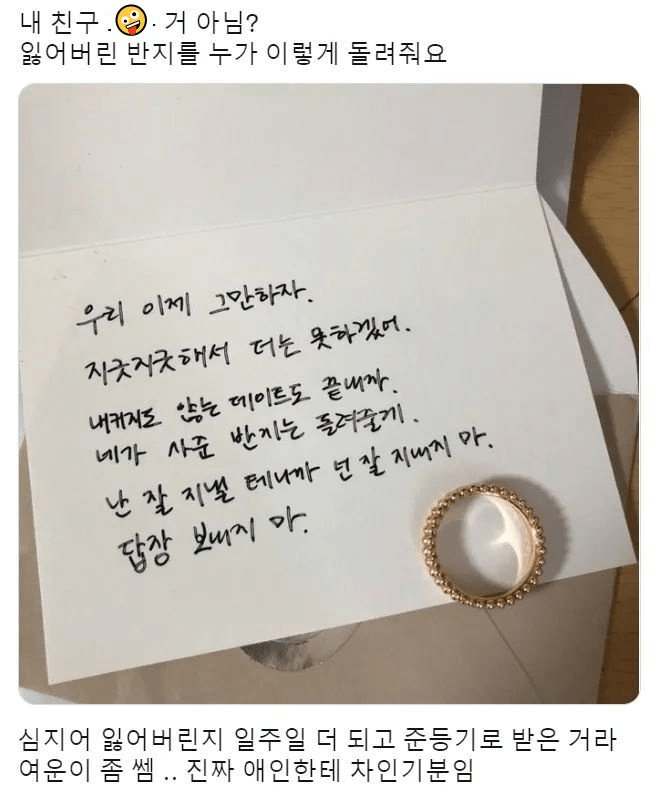 내 친구 . 🤪 · 거 아님?
잃어버린 반지를 누가 이렇게 돌려줘요
우리 이제 그만하자.
지긋지긋해서 더는 못하겠어.
내키지도 않는 데이트도 끝내자.
네가 사준 반지는 돌려줄게.
난 잘 지낼 테니까 넌 잘 지내지 마.
답장 보내지 마.
심지어 잃어버린지 일주일 더 되고 준등기로 받은 거라
여운이 좀 쎔 .. 진짜 애인한테 차인기분임